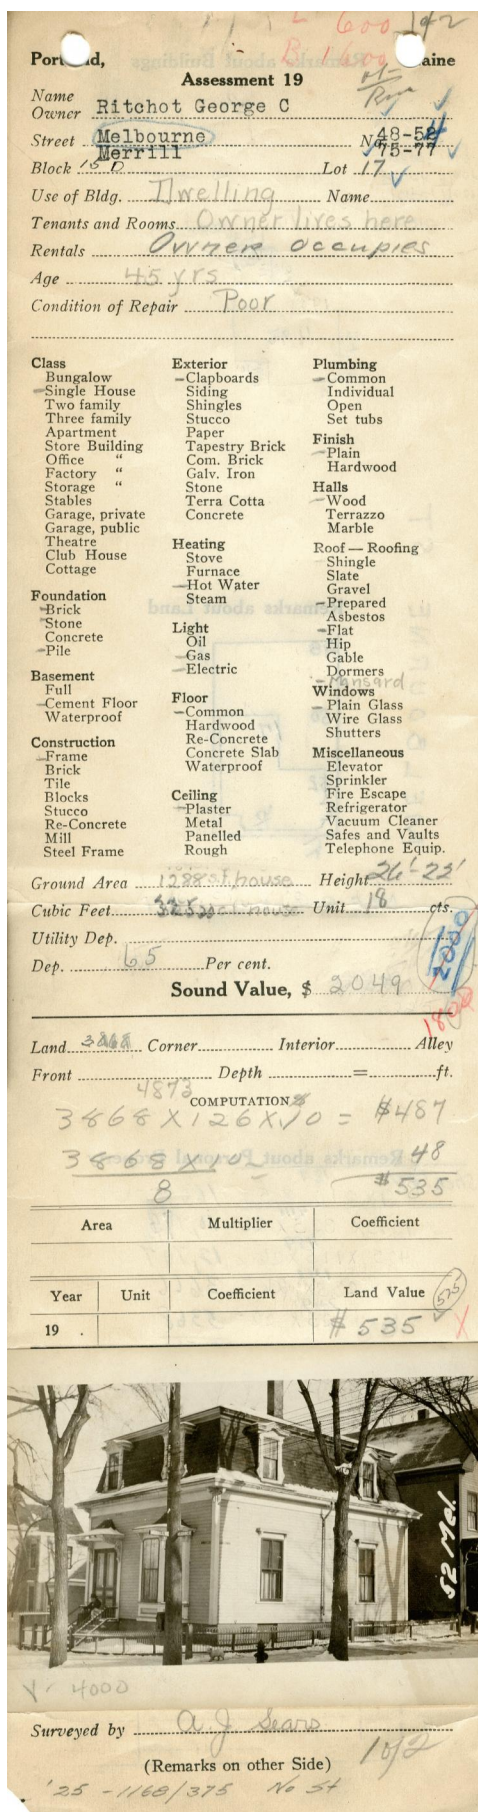 L 600 142
B 1600
Portland, Maine
Assessment 19
Name
Owner Ritchot George C
Street Melbourne No 48-52
Merrill 75-77
Block 15 D Lot 17
Use of Bldg. Dwelling Name
Tenants and Rooms Owner lives here
Rentals Owner occupies
Age 45 yrs
Condition of Repair Poor
Class
Bungalow
Single House
Two family
Three family
Apartment
Store Building
Office "
Factory "
Storage "
Stables
Garage, private
Garage, public
Theatre
Club House
Cottage
Foundation
Brick
Stone
Concrete
Pile
Basement
Full
Cement Floor
Waterproof
Construction
Frame
Brick
Tile
Blocks
Stucco
Re-Concrete
Mill
Steel Frame
Exterior
Clapboards
Siding
Shingles
Stucco
Paper
Tapestry Brick
Com. Brick
Galv. Iron
Stone
Terra Cotta
Concrete
Heating
Stove
Furnace
Hot Water
Steam
Light
Oil
Gas
Electric
Floor
Common
Hardwood
Re-Concrete
Concrete Slab
Waterproof
Ceiling
Plaster
Metal
Panelled
Rough
Plumbing
Common
Individual
Open
Set tubs
Finish
Plain
Hardwood
Halls
Wood
Terrazzo
Marble
Roof — Roofing
Shingle
Slate
Gravel
Prepared
Asbestos
Flat
Hip
Gable
Dormers
Mansard
Windows
Plain Glass
Wire Glass
Shutters
Miscellaneous
Elevator
Sprinkler
Fire Escape
Refrigerator
Vacuum Cleaner
Safes and Vaults
Telephone Equip.
Ground Area 1288 sf. house Height 26'-22'
Cubic Feet house Unit 18 cts.
Utility Dep.
Dep. 65 Per cent.
2000
Sound Value, $ 2049
1800
Land 3868 Corner Interior Alley
Front Depth = ft.
4873
COMPUTATION
3868 X 126 X 10 = $487
3868 X 10 48
8 $535
Area Multiplier Coefficient
Year Unit Coefficient Land Value 525
19 . $ 535 X
52 Mel.
4000
Surveyed by A. J. Sears
(Remarks on other Side) 1 of 2
'25 - 1168/375 No St